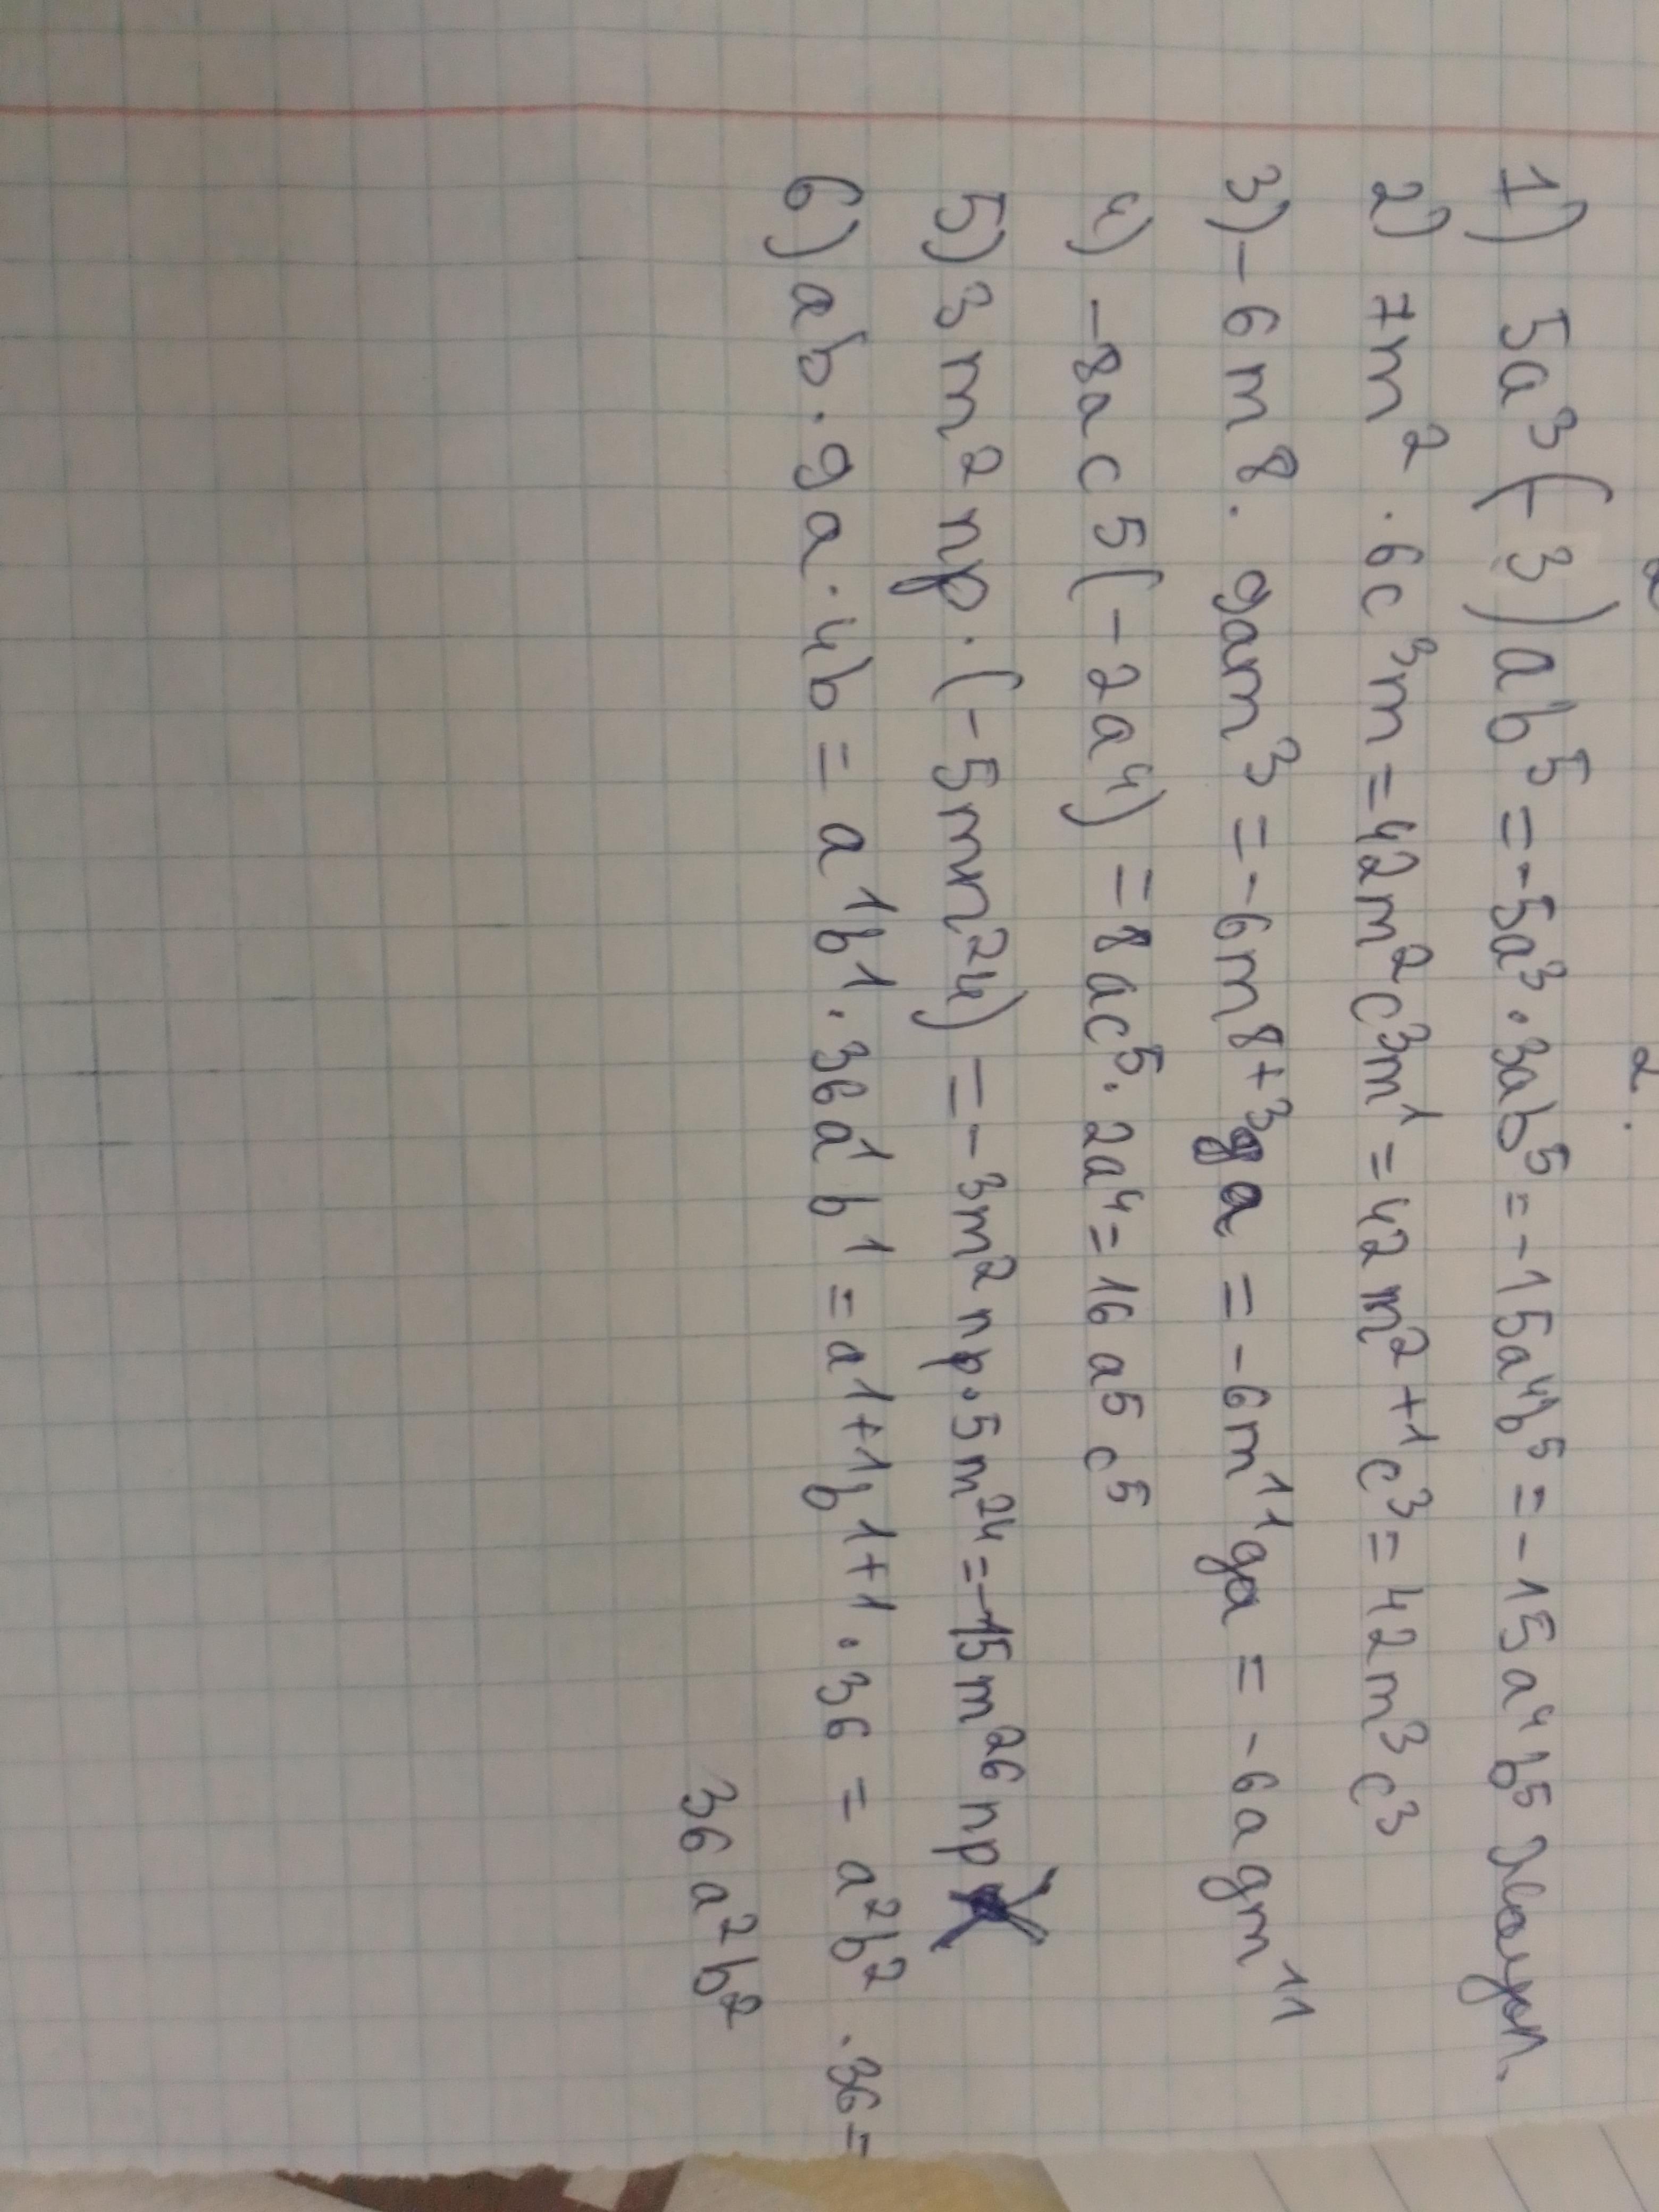 1) 5a³(-3)ab⁵ = -5a³·3ab⁵ = -15a⁴b⁵ = -15a⁴b⁵
2) 7m² · 6c³m = 42m²c³m¹ = 42m²⁺¹c³ = 42m³c³
3) -6m⁸ · gam³ = -6m⁸⁺³ga = -6m¹¹ga = -6agm¹¹
4) -8ac5(-2a⁴) = 8ac⁵·2a⁴ = 16a⁵c⁵
5) 3m²np·(-5mn²⁴) = -3m²np·5m²⁴ = -15m²⁶np
6) ab·9a·4b = a¹b¹·36a¹b¹ = a¹⁺¹b¹⁺¹·36 = a²b²·36 =
36a²b²